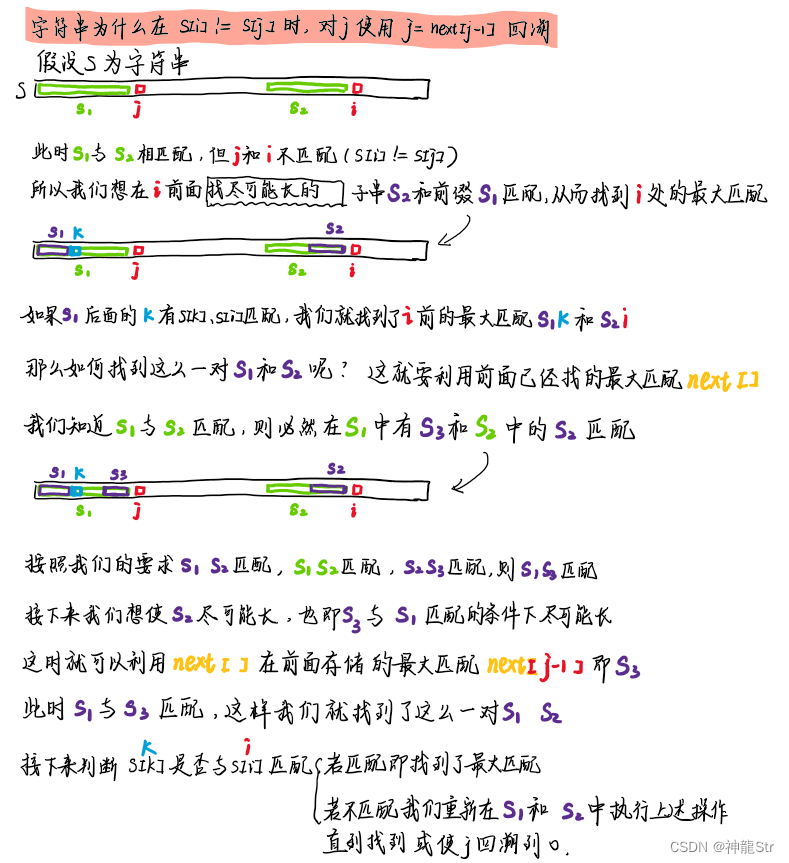 字符串为什么在 S[i] != S[j] 时，对j 使用 j = next[j-1] 回溯
假设S为字符串
S
S1 j S2 i
此时S1与 S2相匹配，但j和i不匹配（S[i] != S[j]）
所以我们想在i前面找尽可能长的 子串S2和前缀S1匹配，从而找到i处的最大匹配
S1 k S2
S1 j S2 i
如果S1后面的k有S[k]、S[i]匹配，我们就找到了i前的最大匹配S1k和S2i
那么如何找到这么一对S1和S2呢？ 这就要利用前面已经找的最大匹配next[]
我们知道S1与S2匹配，则必然在S1中有S3和S2中的S2匹配
S1 k S3 S2
S1 j S2 i
按照我们的要求S1 S2匹配，S1S2匹配，S2S3匹配，则S1S3匹配
接下来我们想使S2尽可能长，也即S3与 S1匹配的条件下尽可能长
这时就可以利用next[]在前面存储的最大匹配next[j-1]即S3
此时S1与S3匹配，这样我们就找到了这么一对S1 S2
k i
接下来判断S[k]是否与S[i]匹配 若匹配即找到了最大匹配
若不匹配我们重新在S1和 S2中执行上述操作
直到找到或使j回溯到0.
CSDN @神龍Str